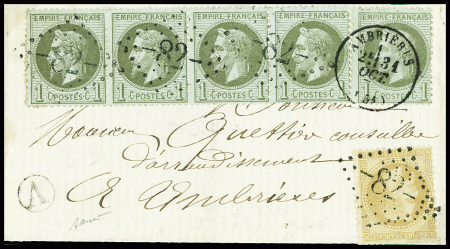 EMPIRE FRANÇAIS EMPIRE FRANÇAIS EMPIRE FRANÇAIS EMPIRE FRANÇAIS EMPIRE FRANÇAIS
82 82 82
AMBRIÈRES
31
OCT
1 C POSTES C 1 1 C POSTES C 1 1 C POSTES C 1 1 C POSTES C 1 1 C POSTES C 1
Monsieur
Monsieur Quettier conseiller
d'arrondissement
A Ambrières
82